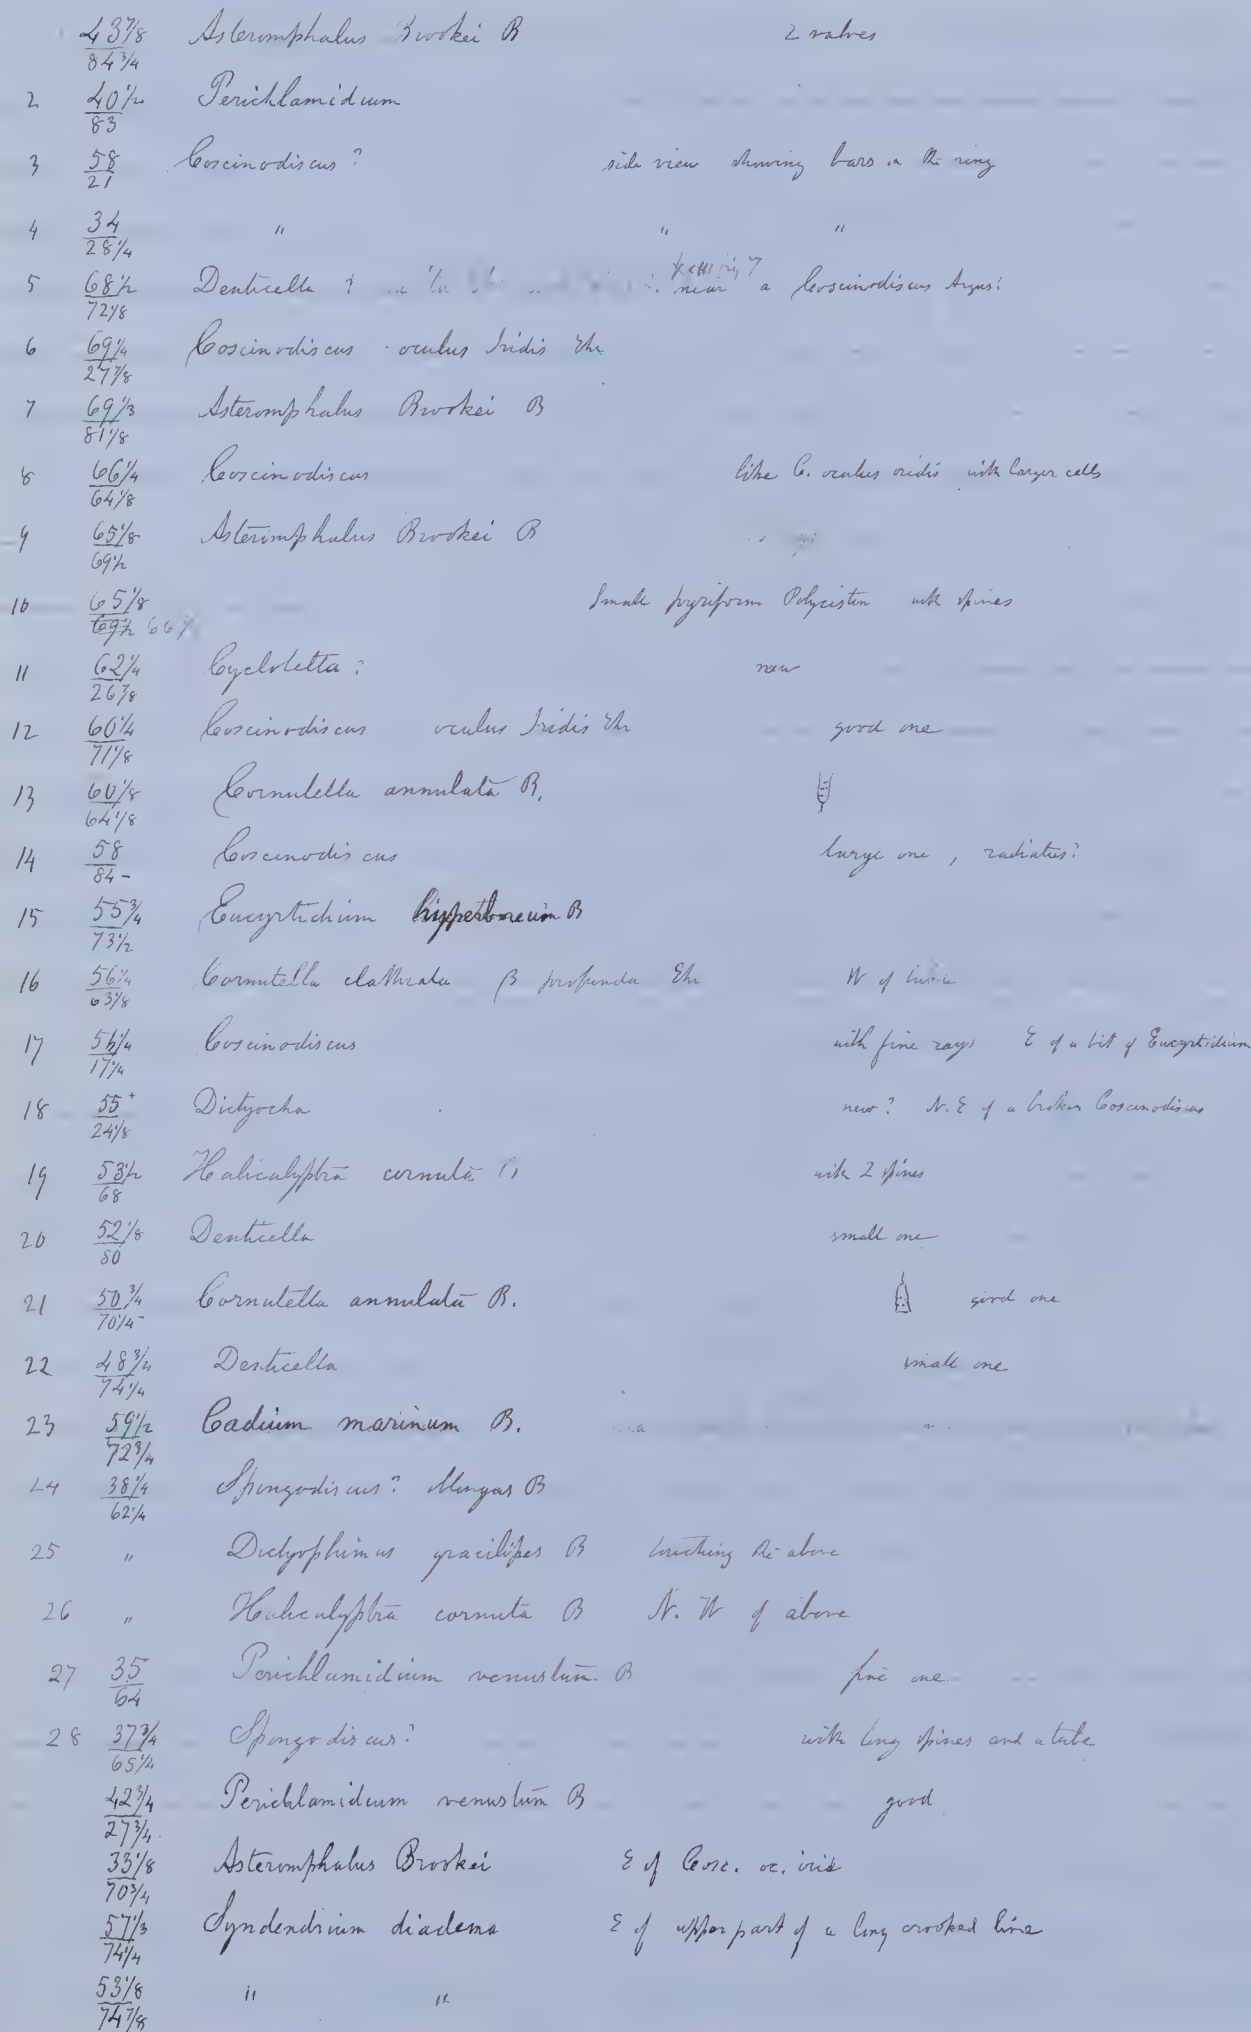 43 7/8 / 84 3/4 Asteromphalus Brookei B 2 valves
2 40 1/2 / 83 Perichlamidium
3 58 / 21 Coscinodiscus? side view showing bars in the ring
4 34 / 28 1/4 " " "
5 68 1/2 / 72 1/8 Denticella ? near a Coscinodiscus Argus?
6 69 1/4 / 27 7/8 Coscinodiscus oculus Iridis Ehr
7 69 1/3 / 81 1/8 Asteromphalus Brookei B
8 66 1/4 / 64 1/8 Coscinodiscus like C. oculus iridis with larger cells
9 65 1/8 / 69 1/2 Asteromphalus Brookei B
10 65 1/8 / 69 1/2 66 Small pyriform Polycistin with spines
11 62 1/4 / 26 7/8 Cyclotella? new
12 60 1/4 / 71 1/8 Coscinodiscus oculus Iridis Ehr good one
13 60 1/8 / 64 1/8 Cornutella annulata B.
14 58 / 84 - Coscinodiscus large one, radiatus?
15 55 3/4 / 73 1/2 Eucyrtidium hyperboreum B
16 56 1/4 / 63 1/8 Cornutella clathrata β profunda Ehr W of
17 56 1/4 / 17 1/4 Coscinodiscus with fine rays E of a bit of Eucyrtidium
18 55 + / 24 1/8 Dictyocha new? N.E of a broken Coscinodiscus
19 53 1/2 / 68 Halicalyptra cornuta B with 2 spines
20 52 1/8 / 80 Denticella small one
21 50 3/4 / 70 1/4 - Cornutella annulata B. good one
22 48 3/4 / 74 1/4 Denticella small one
23 59 1/2 / 72 3/4 Cadium marinum B.
24 38 1/4 / 62 1/4 Spongodiscus? B
25 " Dictyophimus gracilipes B touching the above
26 " Halicalyptra cornuta B N. W of above
27 35 / 64 Perichlamidium venustum B fine one
28 37 3/4 / 65 1/4 Spongodiscus? with long spines and a tube
42 3/4 / 27 3/4 Perichlamidium venustum B good
33 1/8 / 70 3/4 Asteromphalus Brookei E of Cosc. oc. irid
57 1/3 / 74 1/4 Syndendrium diadema E of upper part of a long crooked line
53 1/8 / 74 7/8 " "